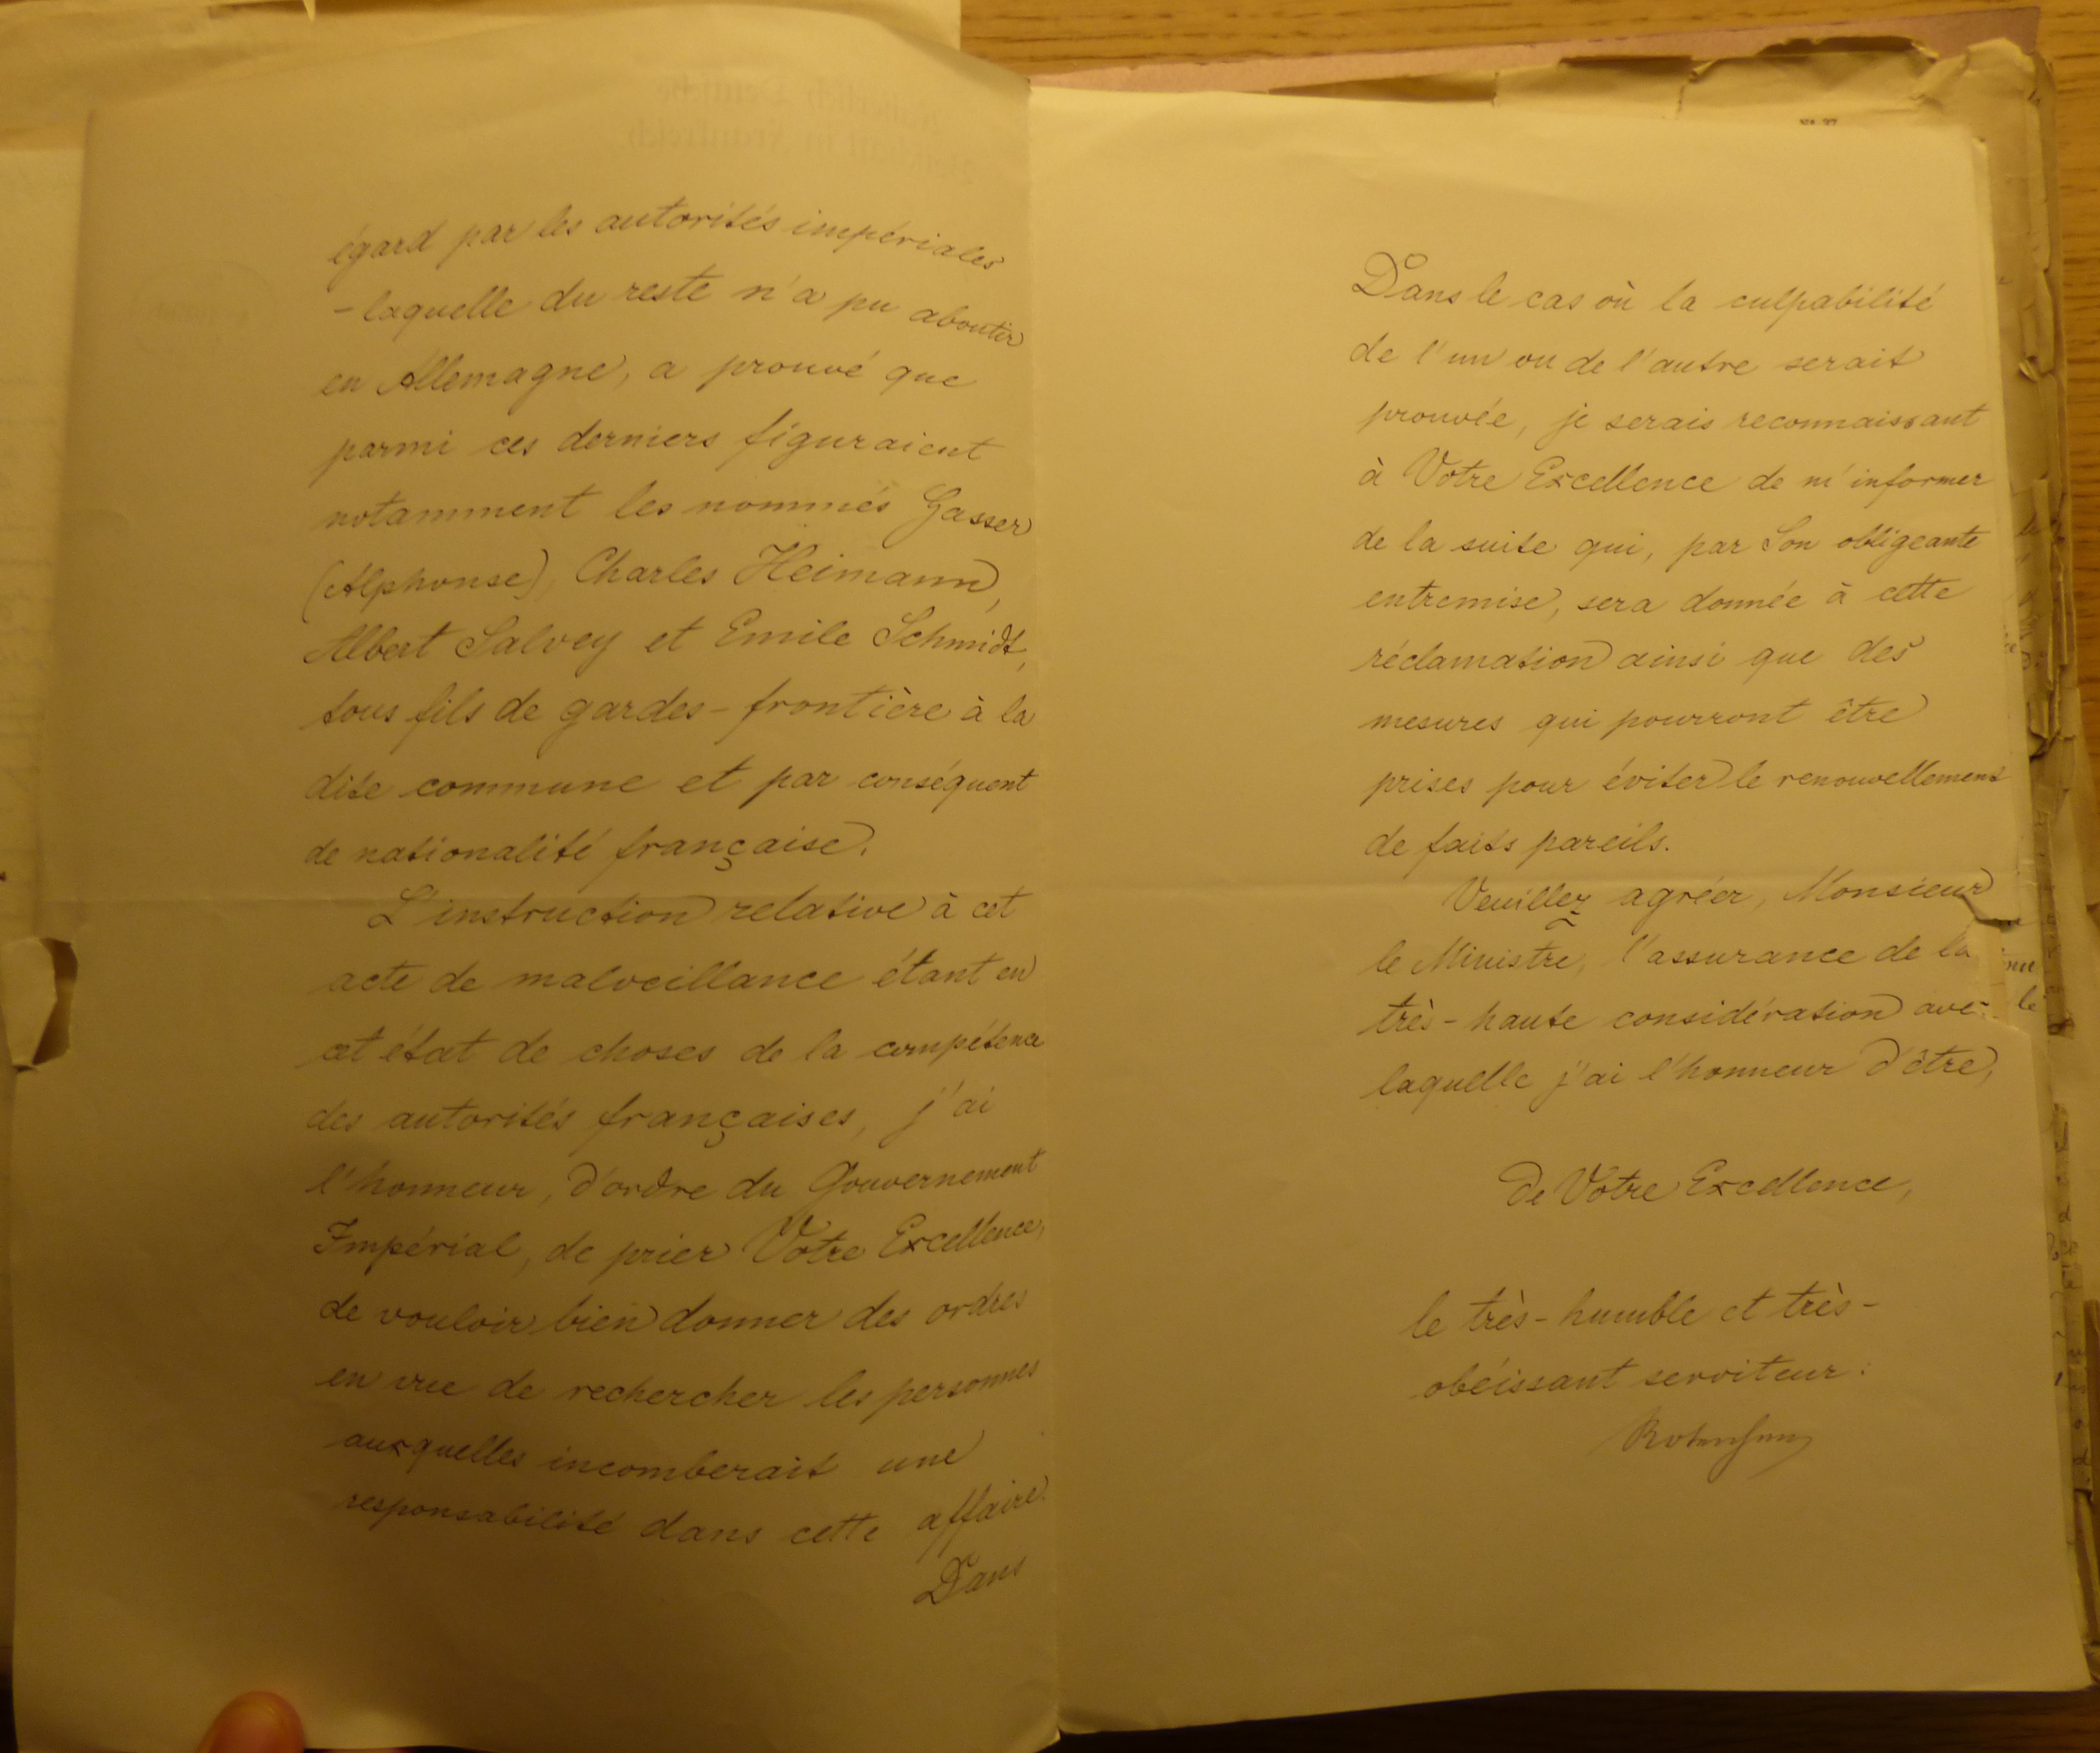 égard par les autorités impériales
- laquelle du reste n'a pu aboutir
en Allemagne, a prouvé que
parmi ces derniers figuraient
notamment les nommés Gasser
(Alphonse), Charles Heimann,
Albert Salvey et Emile Schmidt,
tous fils de gardes-frontière à la
dite commune et par conséquent
de nationalité française.
L'instruction relative à cet
acte de malveillance étant en
cet état de choses de la compétence
des autorités françaises, j'ai
l'honneur, d'ordre du Gouvernement
Impérial, de prier Votre Excellence,
de vouloir bien donner des ordres
en vue de rechercher les personnes
auxquelles incomberait une
responsabilité dans cette affaire.
Dans
Dans le cas où la culpabilité
de l'un ou de l'autre serait
prouvée, je serais reconnaissant
à Votre Excellence de m'informer
de la suite qui, par Son obligeante
entremise, sera donnée à cette
réclamation ainsi que des
mesures qui pourront être
prises pour éviter le renouvellement
de faits pareils.
Veuillez agréer, Monsieur
le Ministre, l'assurance de la
très-haute considération avec
laquelle j'ai l'honneur d'être,
de Votre Excellence,
le très-humble et très-
obéissant serviteur: